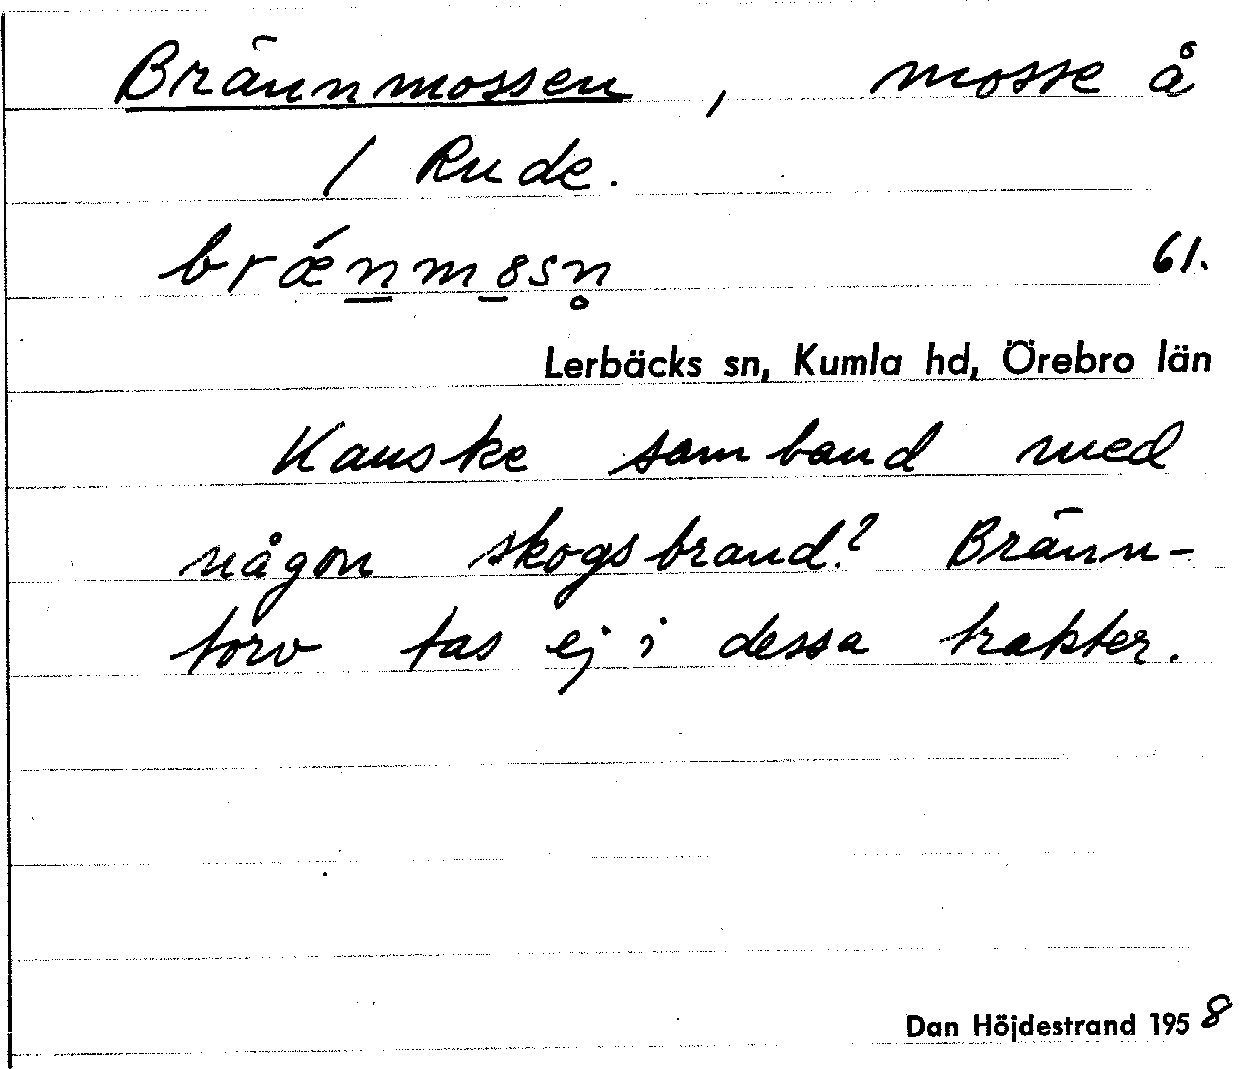 Brännmossen, mosse å
1 Rude.
brǽnmosn̥ 61.
Lerbäcks sn, Kumla hd, Örebro län
Kanske samband med
någon skogsbrand? Bränn-
torv tas ej i dessa trakter.
Dan Höjdestrand 1958